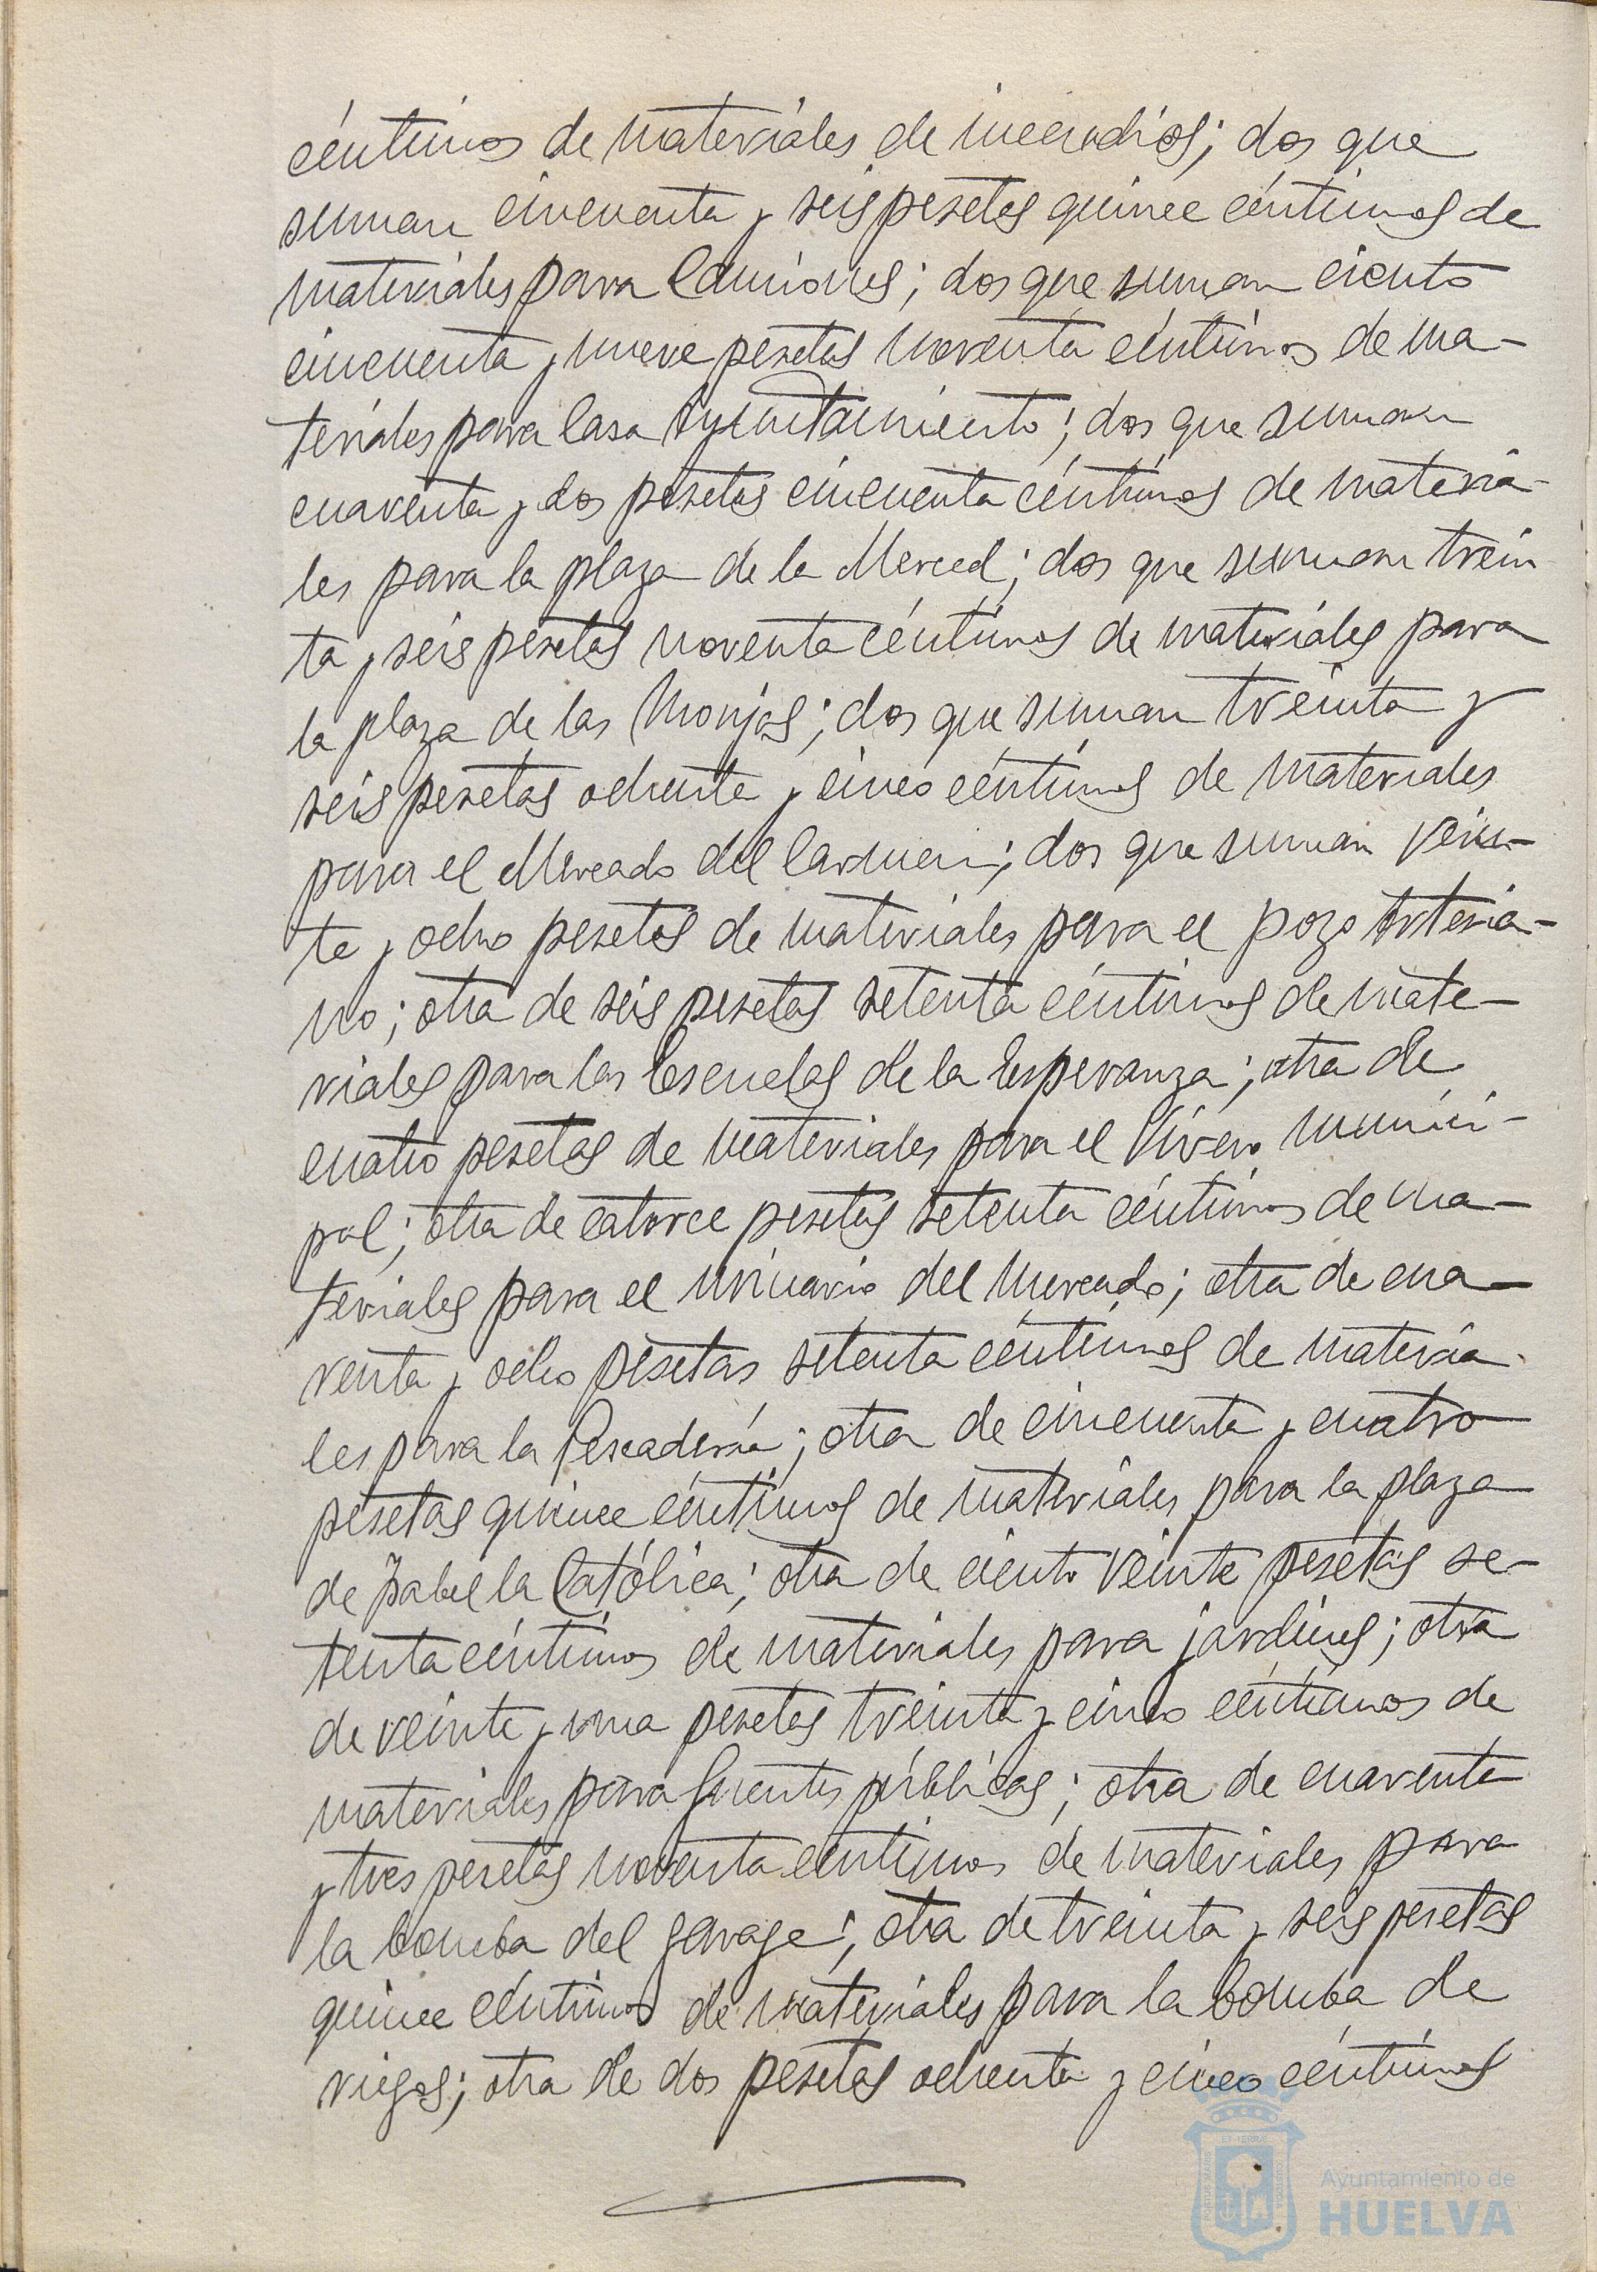 céntimos de materiales de incendios; dos que
suman cincuenta y seis pesetas quince céntimos de
materiales para Camiones; dos que suman ciento
cincuenta y nueve pesetas noventa céntimos de ma-
teriales para Casa Ayuntamiento; dos que suman
cuarenta y dos pesetas cincuenta céntimos de materia-
les para la plaza de la Merced; dos que suman trein
ta y seis pesetas noventa céntimos de materiales para
la plaza de las Monjas; dos que suman treinta y
seis pesetas ochenta y cinco céntimos de materiales
para el Mercado del Carmen; dos que suman vein-
te y ocho pesetas de materiales para el pozo Artesia-
no; otra de seis pesetas setenta céntimos de mate-
riales para las Escuelas de la Esperanza; otra de
cuatro pesetas de materiales para el Vivero munici-
pal; otra de catorce pesetas setenta céntimos de ma-
teriales para el urinario del Mercado; otra de cua-
renta y ocho pesetas setenta céntimos de materia-
les para la Pescadería; otra de cincuenta y cuatro
pesetas quince céntimos de materiales para la plaza
de Isabel la Católica; otra de ciento veinte pesetas se-
tenta céntimos de materiales para jardines; otra
de veinte y una pesetas treinta y cinco céntimos de
materiales para fuentes públicas; otra de cuarenta
y tres pesetas noventa centimos de materiales para
la bomba del garage; otra de treinta y seis pesetas
quince céntimos de materiales para la bomba de
riegos; otra de dos pesetas ochenta y cinco céntimos
Ayuntamiento de
HUELVA